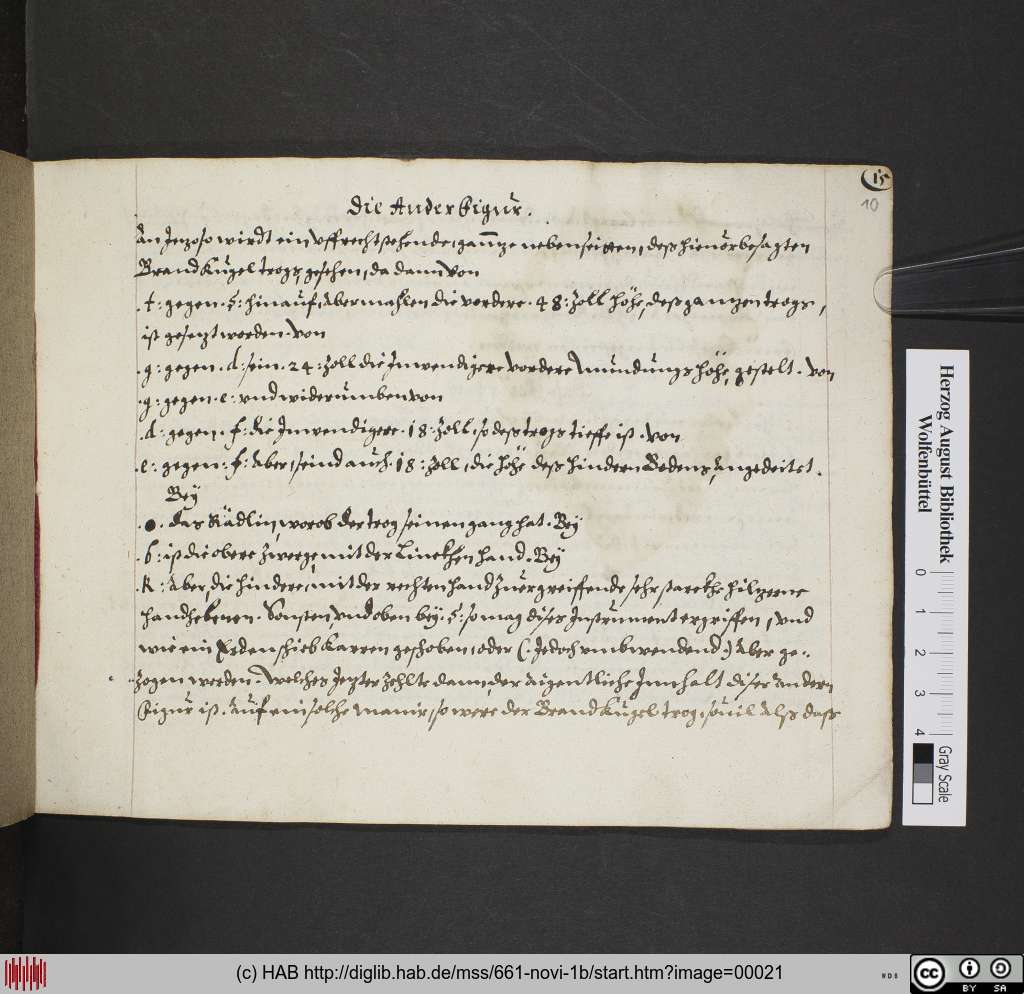 15
10
Die Ander Figur.
An jezo so wirdt ein vffrecht stehende, gantze nebenseitten, deß hieuorbesagten
Brand Kugel trogs, gesehen, da dann von
.t: gegen .5: hinauf, abermahlen die vordere .48: Zoll höhe, deß gantzen trogs,
ist gesezt worden. von
.g: gegen .d: sein .24: Zoll die Jnwendigere vordere Mündungs höhe, gestelt. von
.g: gegen .e: vnd widerumben von
.d: gegen .f: die Jnwendigere .18: Zoll, so deß trogs tieffe ist. von
.e: gegen .f: aber, seind auch .18: Zoll, die höhe deß hindern Bodens, angedeitet.
Bey
.o. das Rädlin, worob der trog seinen gang hat. Bey
.6: ist die obere Zwerge, mit der Linckhen hand. Bey
.K: aber, die hindere, mit der rechten hand zuergreiffende sehr starckhe hiltzerne
handhebenen. Sonsten, vnd oben bey .5: so mag dises Jnstrument ergriffen, vnd
wie ein Erden schieb Karren geschoben, oder (: Jedoch vmbwendend :) aber ge-
zogen werden. Welches Jezterzehlte dann, der aigentliche Jnnhalt diser andern
Figur ist. Auf ein solche manir, so were der Brand Kugel trog, souil alß daß
Herzog August Bibliothek
Wolfenbüttel
0 1 2 3 4
Gray Scale
(c) HAB http://diglib.hab.de/mss/661-novi-1b/start.htm?image=00021
WDB
cc BY SA